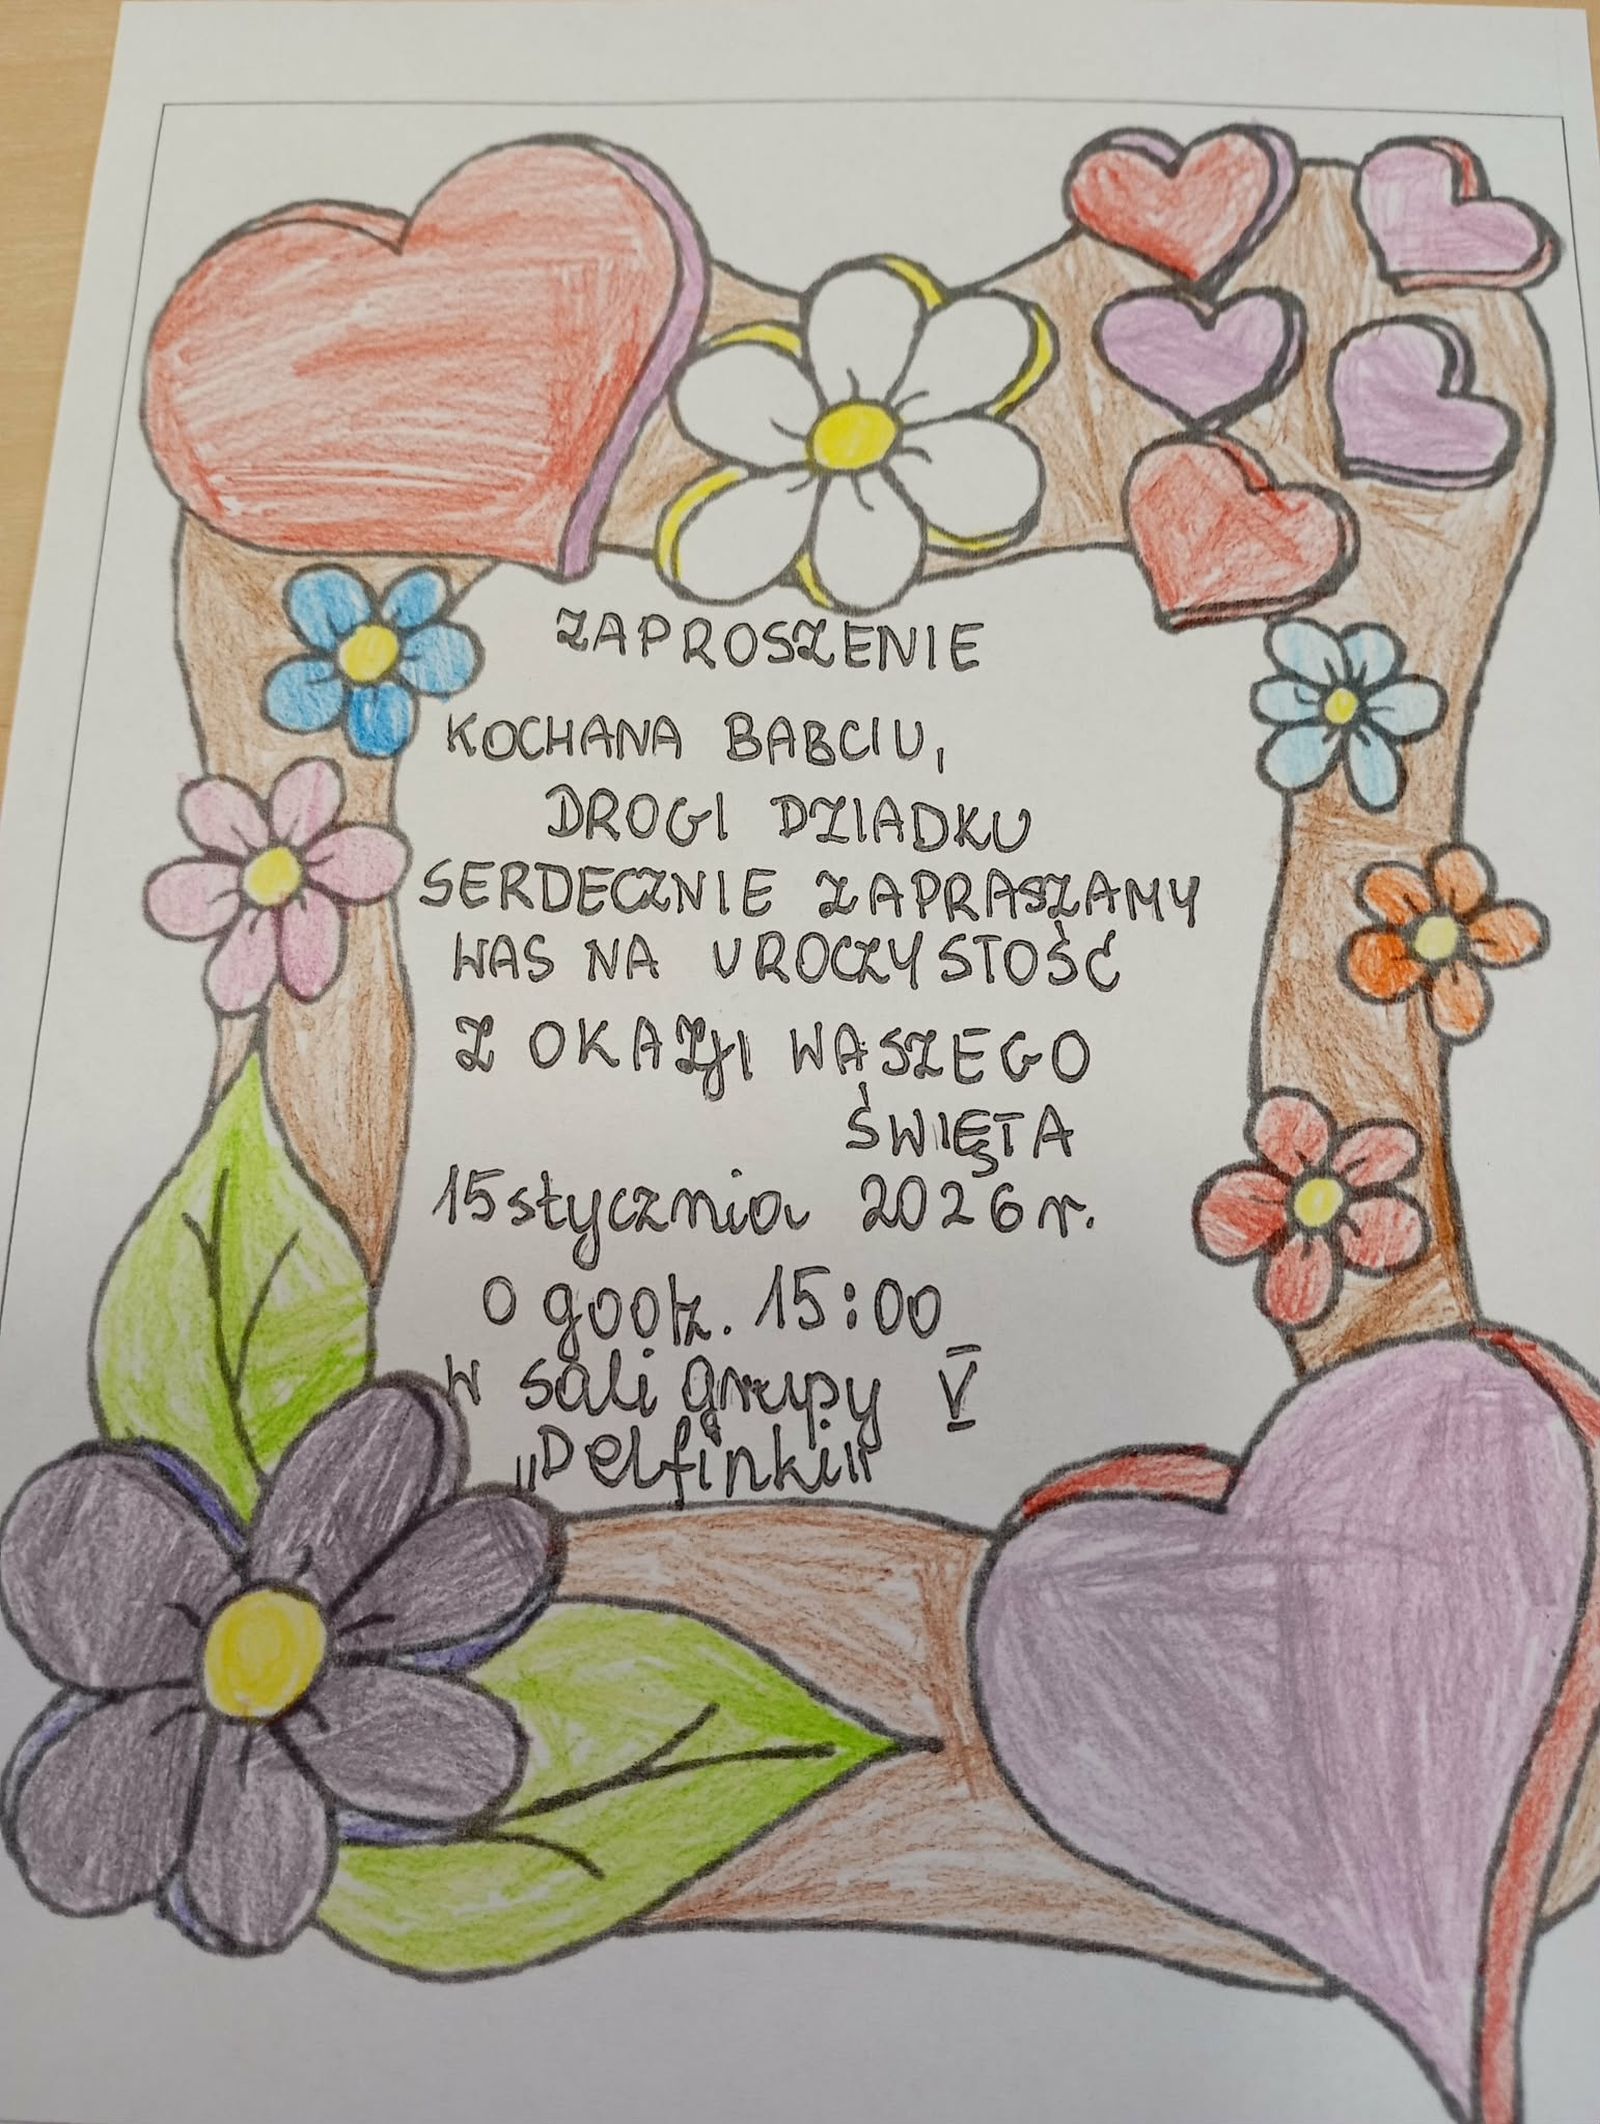 ZAPROSZENIE
KOCHANA BABCIU,
DROGI DZIADKU
SERDECZNIE ZAPRASZAMY
WAS NA UROCZYSTOŚĆ
Z OKAZJI WASZEGO
ŚWIĘTA
15 stycznia 2026 r.
O godz. 15:00
W sali grupy V
„Delfinki"